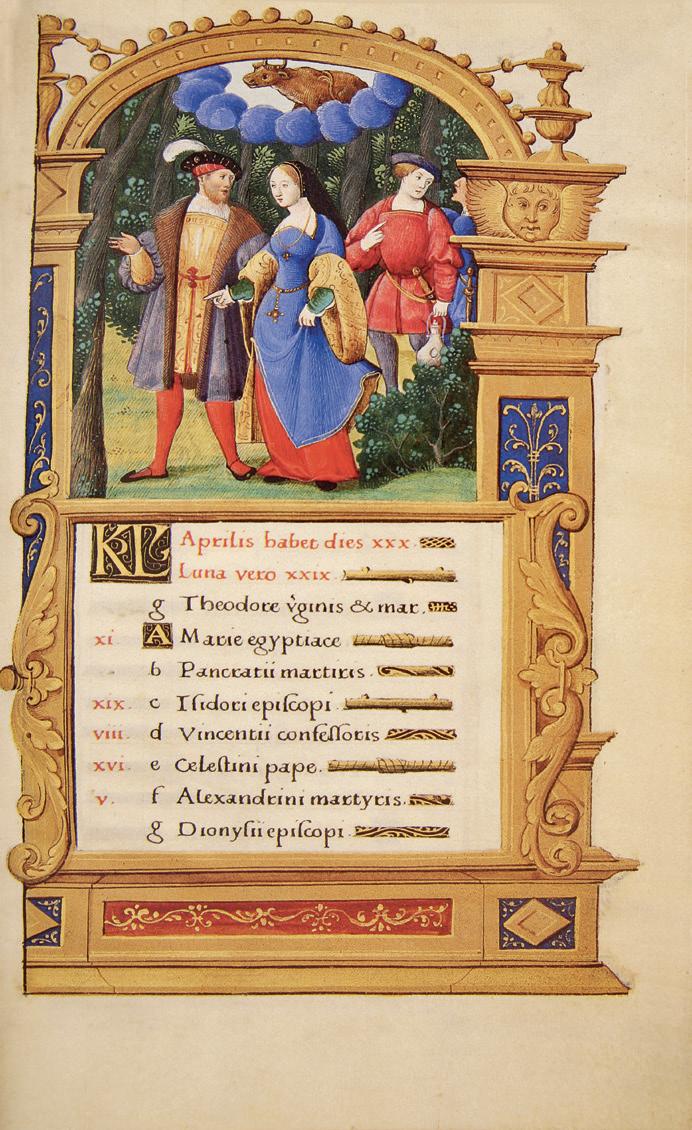 KL Aprilis habet dies xxx
Luna vero xxix
g Theodore v̓ginis & mar.
xi A Marie egyptiace
b Pancratii martiris
xix c Isidori episcopi
viii d Vincentii confessoris
xvi e Celestini pape
v f Alexandrini martyris
g Dionysii episcopi